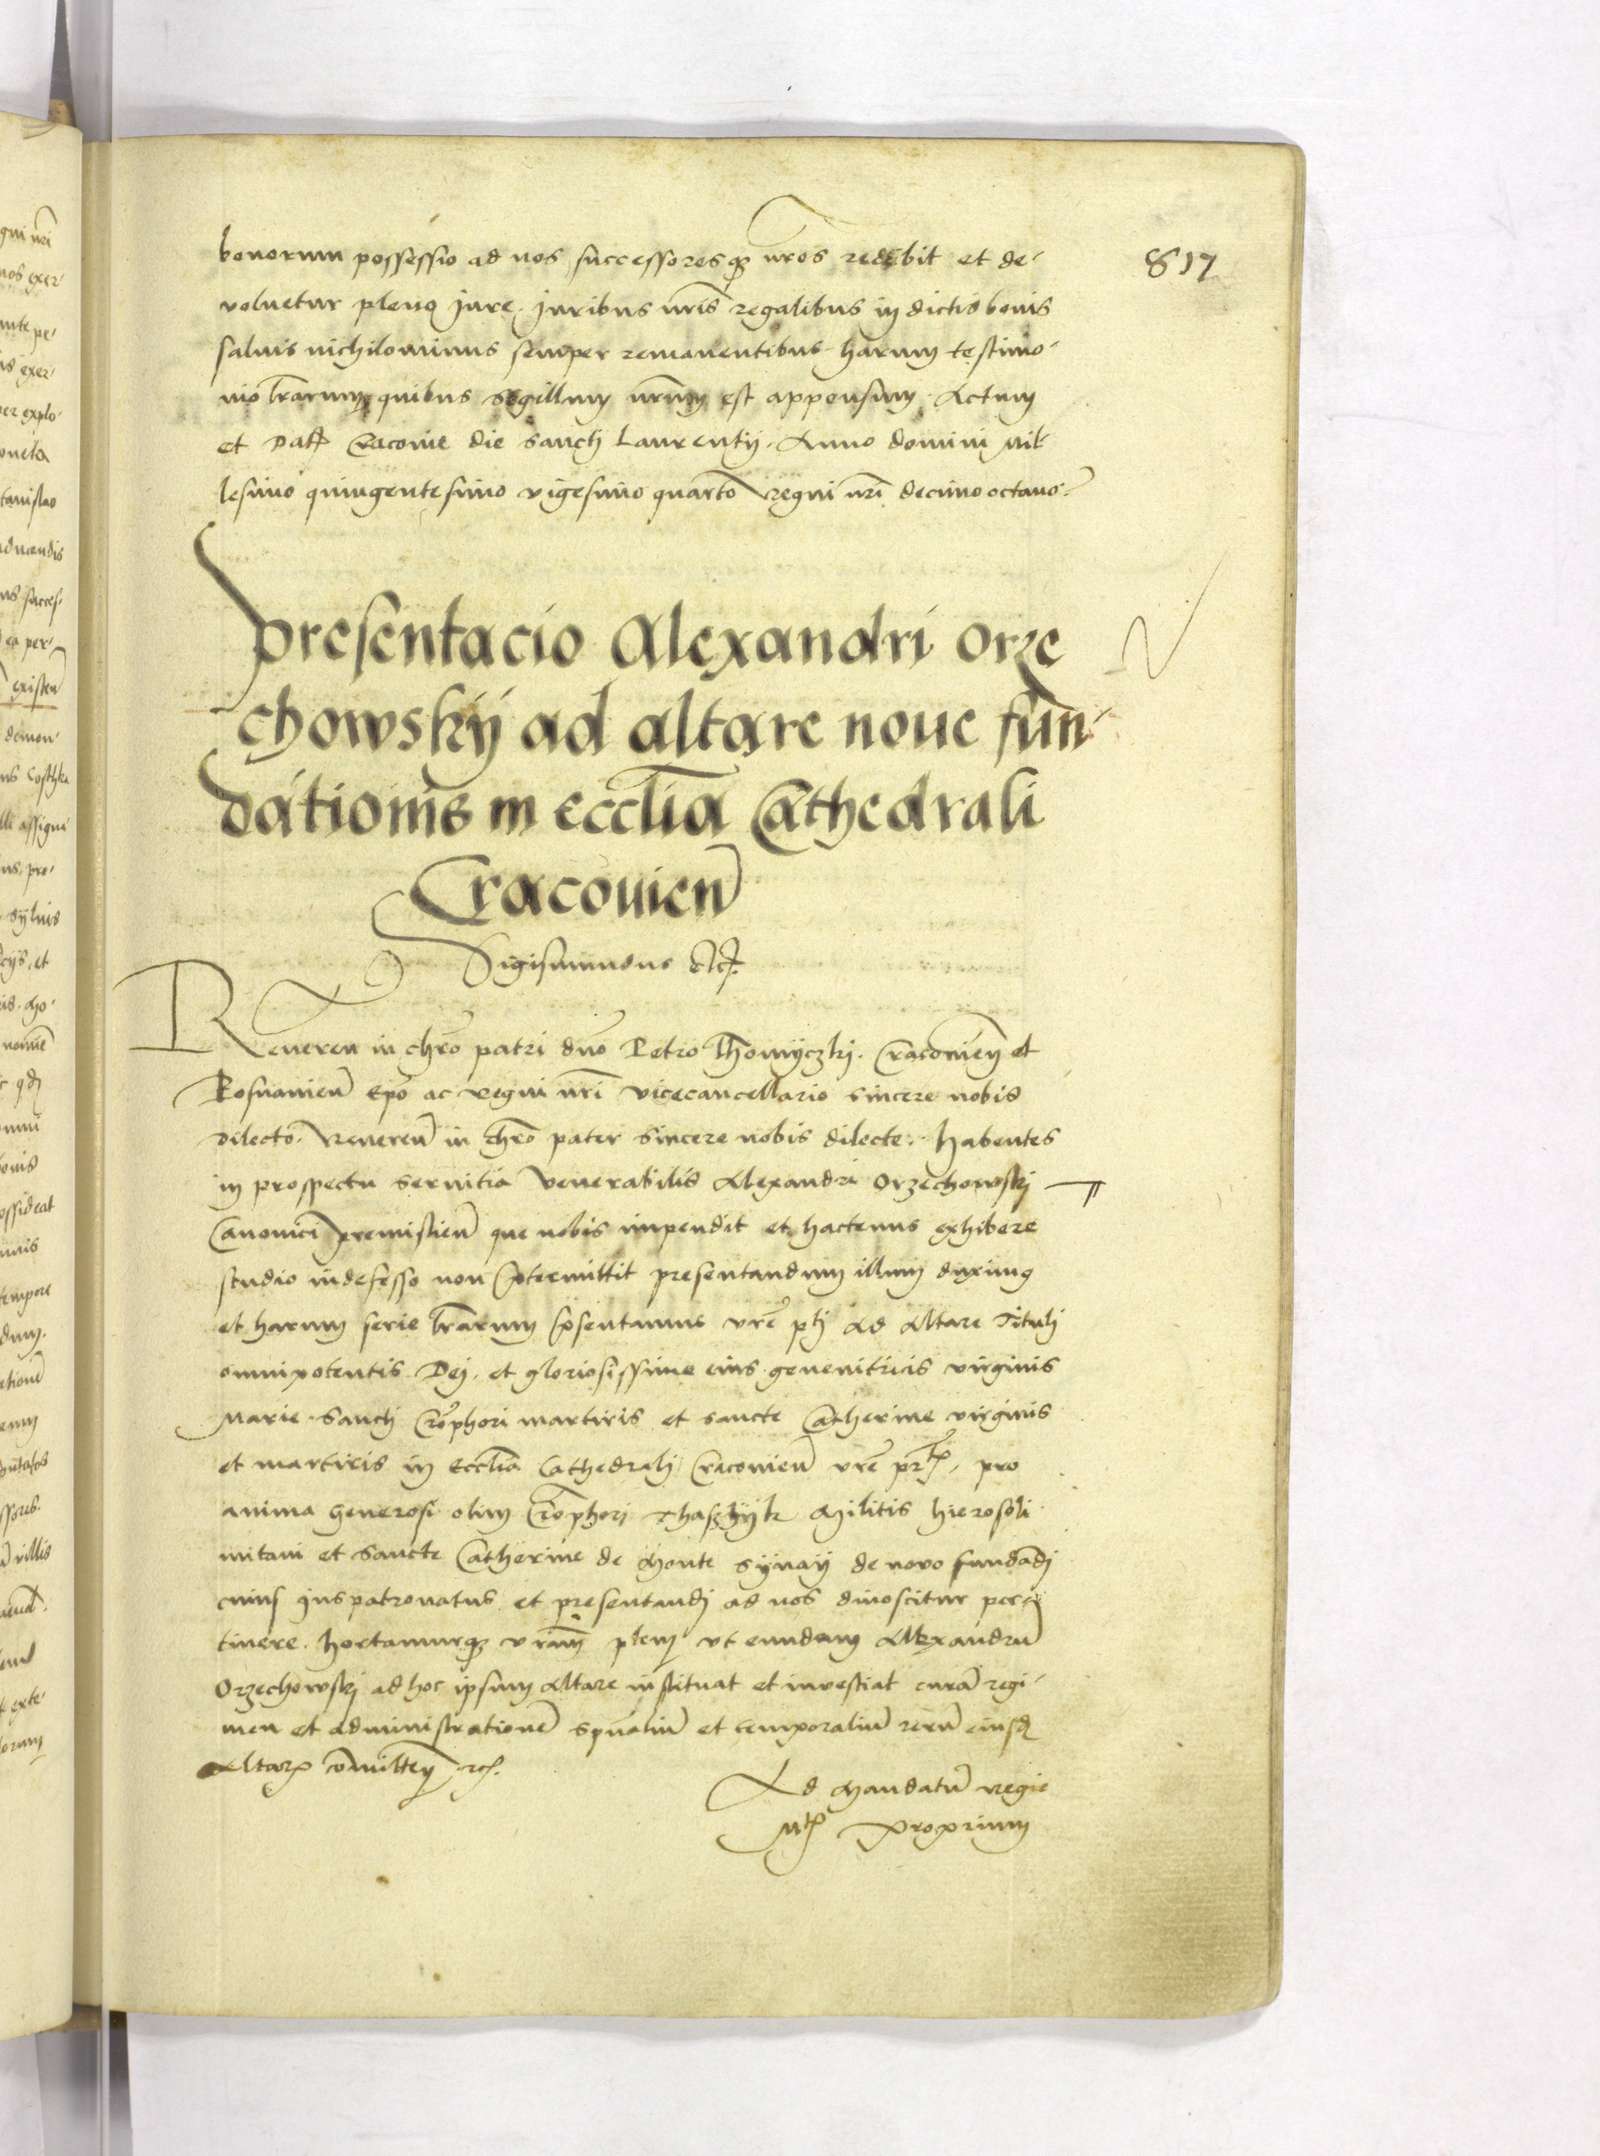 817
bonorum possessio ad nos successoresqȝ nr̃os redebit et de-
voluetur pleno jure. juribus nr̃is regalibus in dictis bonis
saluis nichilominus semper remanentibus harum testimo-
nio lr̃arum quibus sigillum nr̃um est appensum. Actum
et Dat Cracovie die sancti Laurentij. Anno domini Mil-
lesimo quingentesimo vigesimo quarto regni nr̃i decimo octauo
presentacio Alexandri Orze
chowskÿ ad altare noue fun-
dationis in Ecclīa Cathedrali
Cracouieñ
Sigismundus etc.
Revereñ in chr̃o patri dn̄o Petro Thomÿczki. Cracovieñ et
Posnanieñ Ep̄o ac Regni nr̃i vicecancellario sincere nobis
dilecto. Revereñ in chr̃o pater sincere nobis dilecte. Habentes
in prospectu servitia venerabilis Alexandri Orzechowskj
Canonici premislieñ que nobis impendit et hactenus exhibere
studio indefesso non p̄termittit presentandum illum duximꝯ
et harum serie lr̃arum p̄sentamus vr̃e pt̄j Ad Altare Tituli
omnipotentis Dej. et gloriosissime eius genenitricis virginis
Marie. Sancti Cr̃ophori martiris et sancte Catherine virginis
et martiris in Ecclīa Cathedralj Cracovieñ vr̃e pr̃tis, pro
anima Generosi olim Cr̃ophori Thaszÿk Militis hierosoli
mitani et Sancte Catherine de Monte Sÿnaÿ de novo fundādj
cuius jus patronatus et presentandj ad nos dinoscitur per-
tinere. hortamurqȝ vr̃am pt̄em vt eundem Alexandrū
Orzechowskj ad hoc ipsum Altare instituat et investiat curā regi-
men et administrationē spūaliū et temporaliū rerū eiusd
Altaris cōmitteñ etc.
Ad Mandatū Regie
Mtis proprium